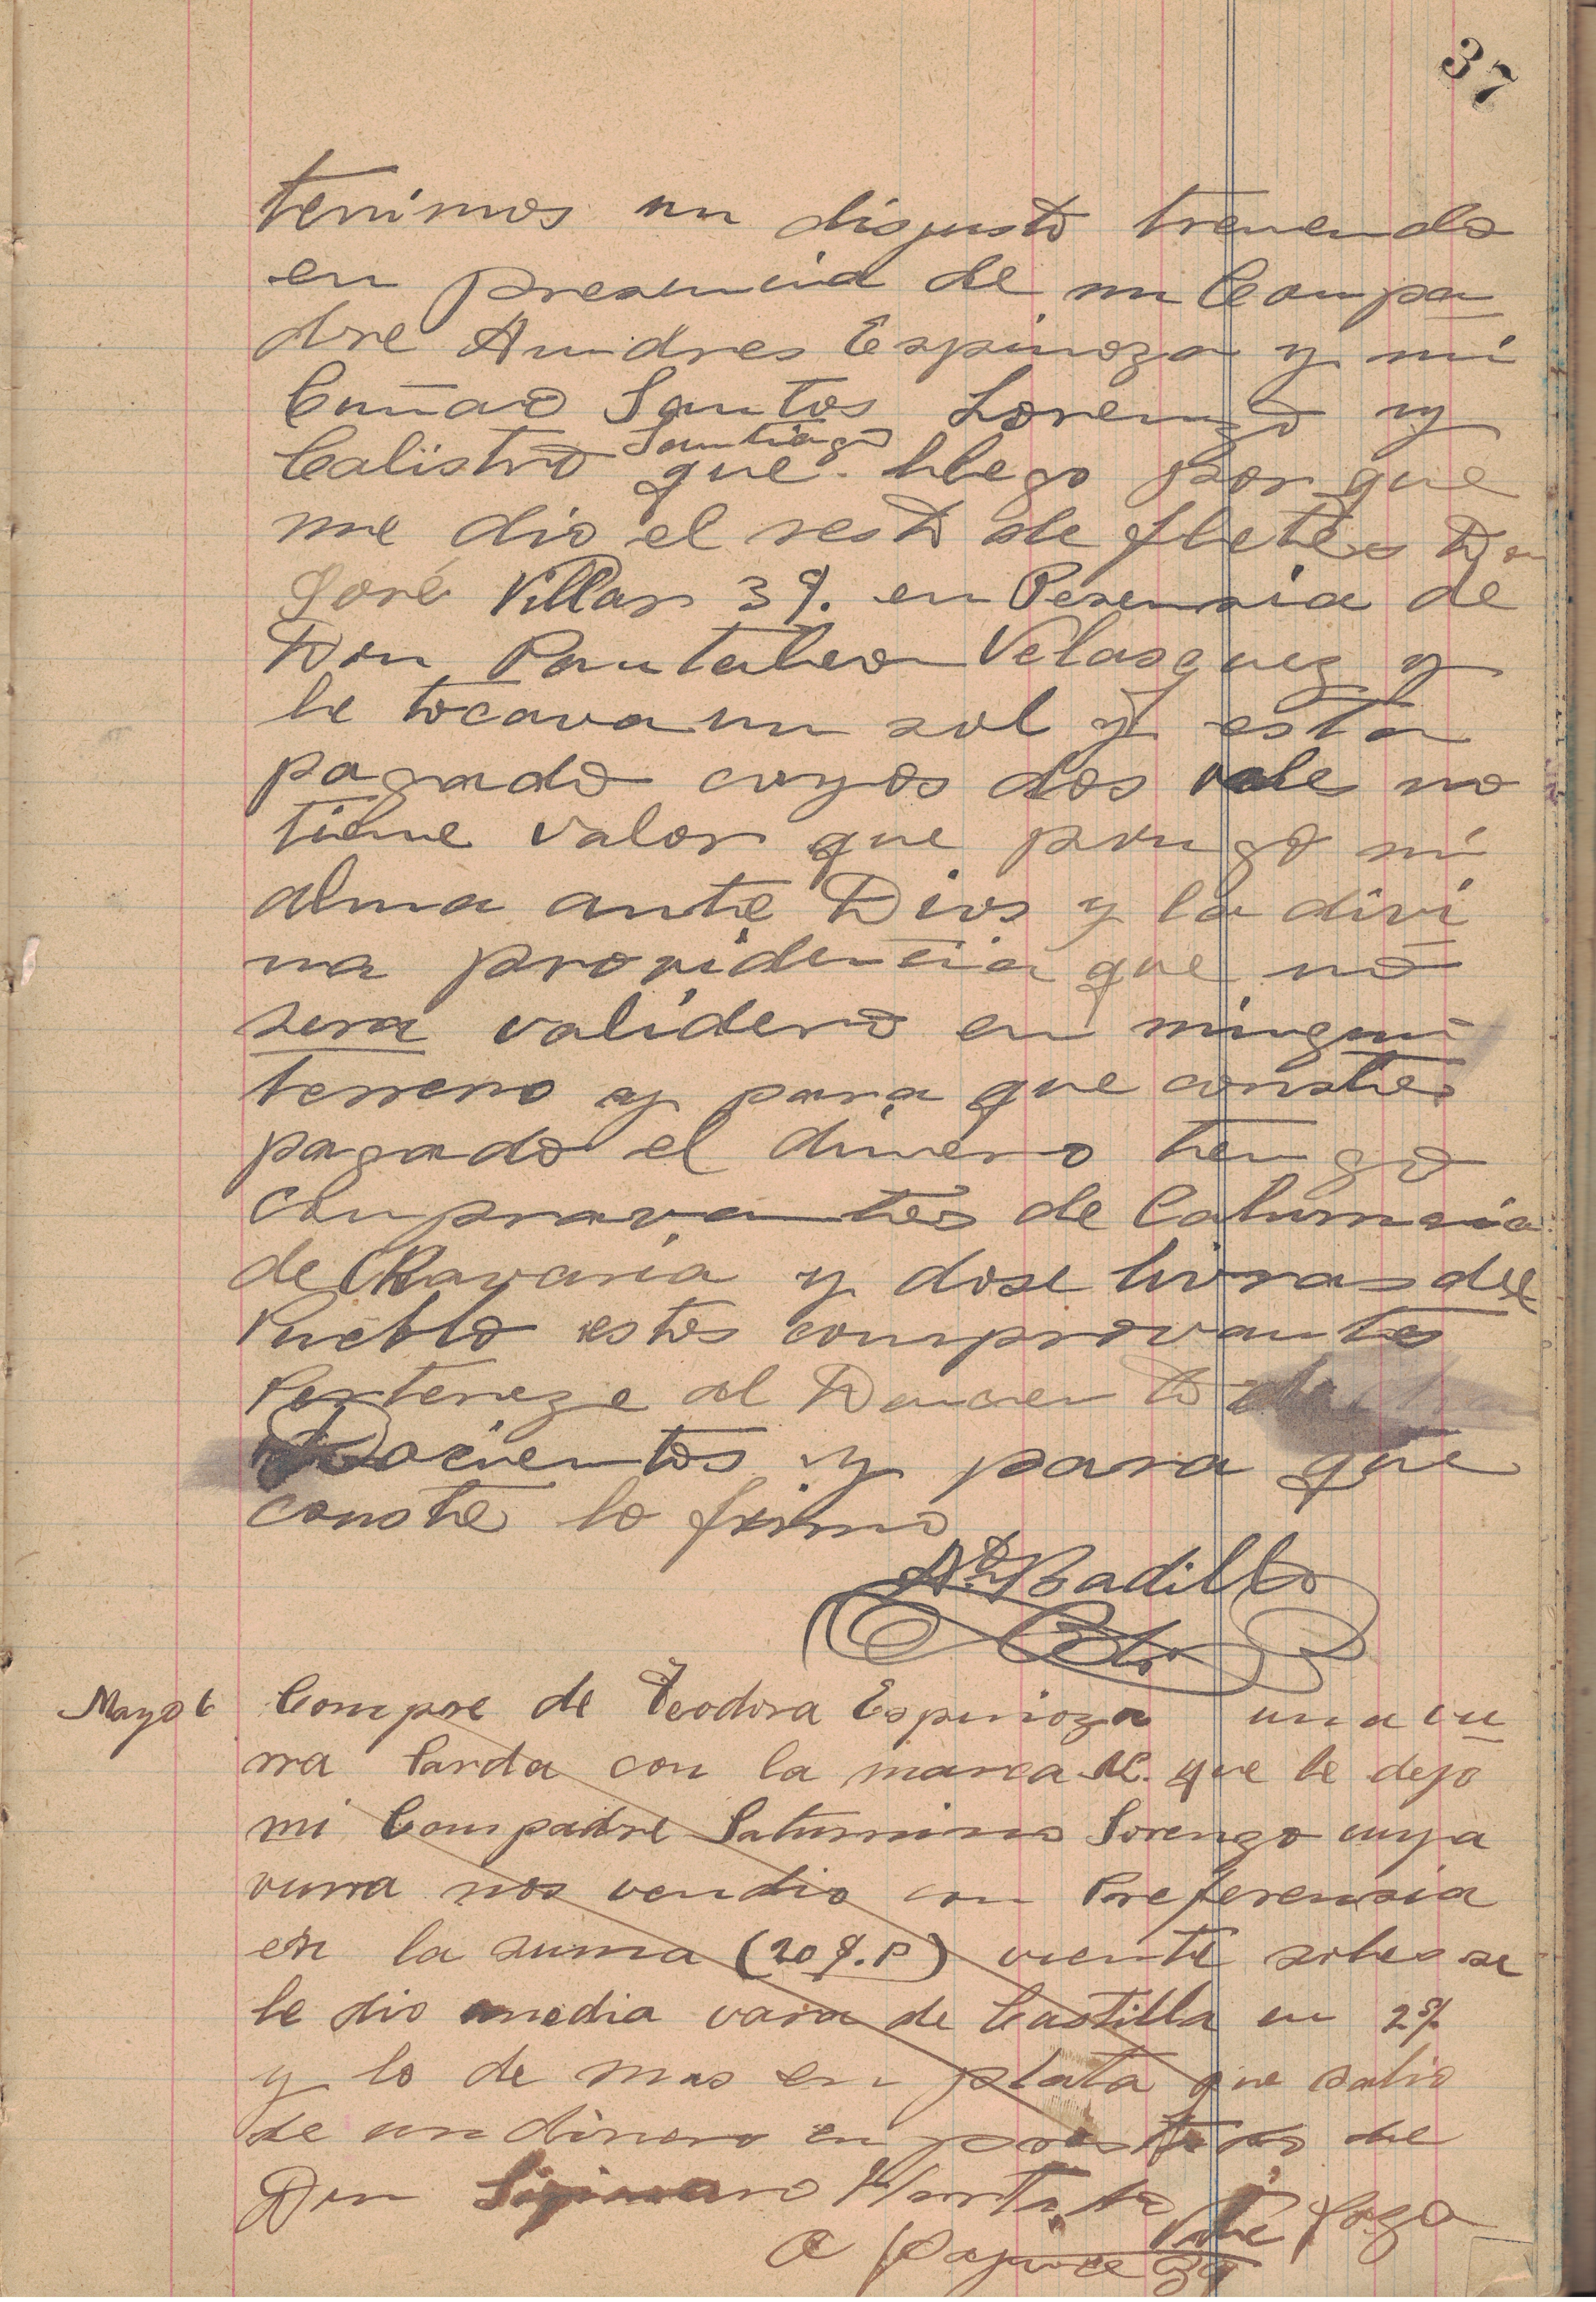 37
tenimos un disgusto tremendo
en presencia de mi Compa
dre Andres Espinoza y mi
Cuñao Santos Lorenzo y
Santiago
Calistro que llego por que
me dio el resto de fletes Don
José Villar 3$. en Peresensia de
Don Pantaleon Velasquez y
le tocava un sol y esta
pagado cuyos dos vale no
tiene valor que pongo mi
alma ante Dios y la divi
na providencia que no
sera validero en ningun
terreno y para que constes
pagado el dinero tengo
comprovantes de Calumnia
de y dose livras del
Pueblo estos comprovantes
Perteneze al
y para que
conste lo firmo
Badillo
Mayo 6 Compre de Teodora Espinoza una vu
rra Parda con la marca que le dejo
mi Compadre Saturnino Lorenzo cuya
vurra nos vendio con Preferensia
en la suma (20 $.P) viente soles se
le dio media vara de Castilla en 2$
y lo de mas en plata que salio
de un dinero en de
Don
a